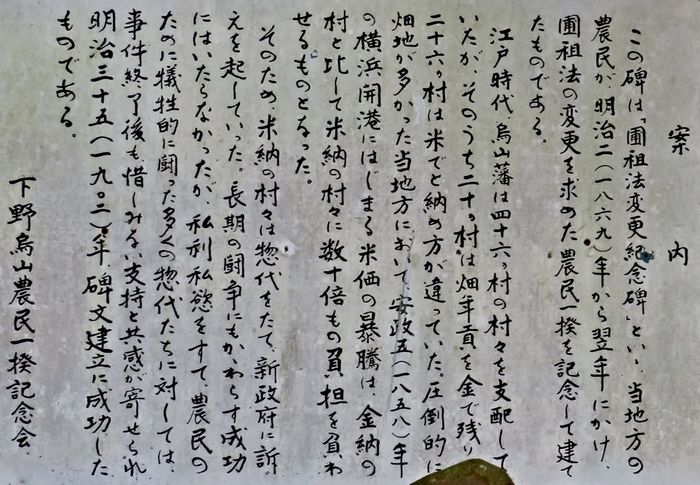 案内
この碑は「圃租法変更紀念碑」といい、当地方の
農民が、明治二(一八六九)年から翌年にかけ、
圃祖法の変更を求めた農民一揆を記念して建て
たものである。
江戸時代、烏山藩は四十六ヵ村の村々を支配して
いたが、そのうち二十ヵ村は畑年貢を金で残り
二十六ヵ村は米でと納め方が違っていた。圧倒的に
畑地が多かった当地方において、安政五(一八五八)年
の横浜開港にはじまる米価の暴騰は、金納の
村と比して米納の村々に数十倍もの負担を負わ
せるものとなった。
そのため、米納の村々は惣代をたて、新政府に訴
えを起していった。長期の闘争にもかゝわらず成功
にはいたらなかったが、私利私慾をすて、農民の
ために犠牲的に闘った多くの惣代たちに対しては、
事件終了後も惜しみない支持と共感が寄せられ
明治三十五(一九〇二)年碑文建立に成功した
ものである。
下野烏山農民一揆記念会